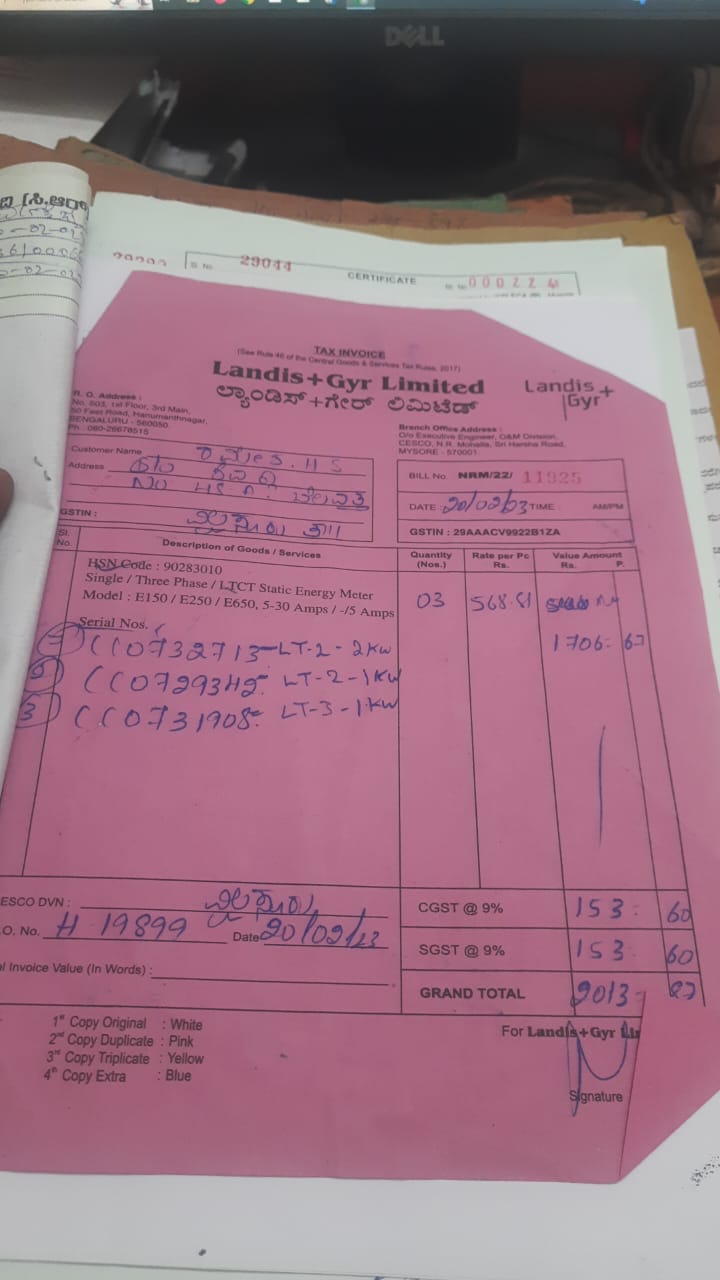 DELL
29044
CERTIFICATE
00022
TAX INVOICE
(See Rule 46 of the Central Goods & Services Tax Rules, 2017)
Landis+Gyr Limited
ಲ್ಯಾಂಡಿಸ್+ಗೇರ್ ಲಿಮಿಟೆಡ್
Landis+
Gyr
R. O. Address :
No. 603, 1st Floor, 3rd Main,
50 Feet Road, Hanumanthnagar,
BENGALURU - 560050.
Ph : 080-26678515
Branch Office Address :
O/o Executive Engineer, O&M Division,
CESCO, N.R. Mohalla, Sri Harsha Road,
MYSORE - 570001
Customer Name
Address
GSTIN :
BILL No. NRM/22/ 11925
DATE : 20/02/23 TIME : AM/PM
GSTIN : 29AAACV9922B1ZA
Sl. No. Description of Goods / Services Quantity (Nos.) Rate per Pc Rs. Value Amount Rs. P.
HSN Code : 90283010
Single / Three Phase / LTCT Static Energy Meter
Model : E150 / E250 / E650, 5-30 Amps / -/5 Amps
03 568.81
Serial Nos.
1706 = 67
CC0732713 - LT-2 - 2KW
2 CC0729342 LT-2 - 1KW
3 CC0731908 LT-3 - 1KW
ESCO DVN :
O. No. H 19899 Date 20/02/23
l Invoice Value (In Words) :
CGST @ 9% 153 = 60
SGST @ 9% 153 60
GRAND TOTAL 2013 = 87
1st Copy Original : White
2nd Copy Duplicate : Pink
3rd Copy Triplicate : Yellow
4th Copy Extra : Blue
For Landis+Gyr Lir
Signature